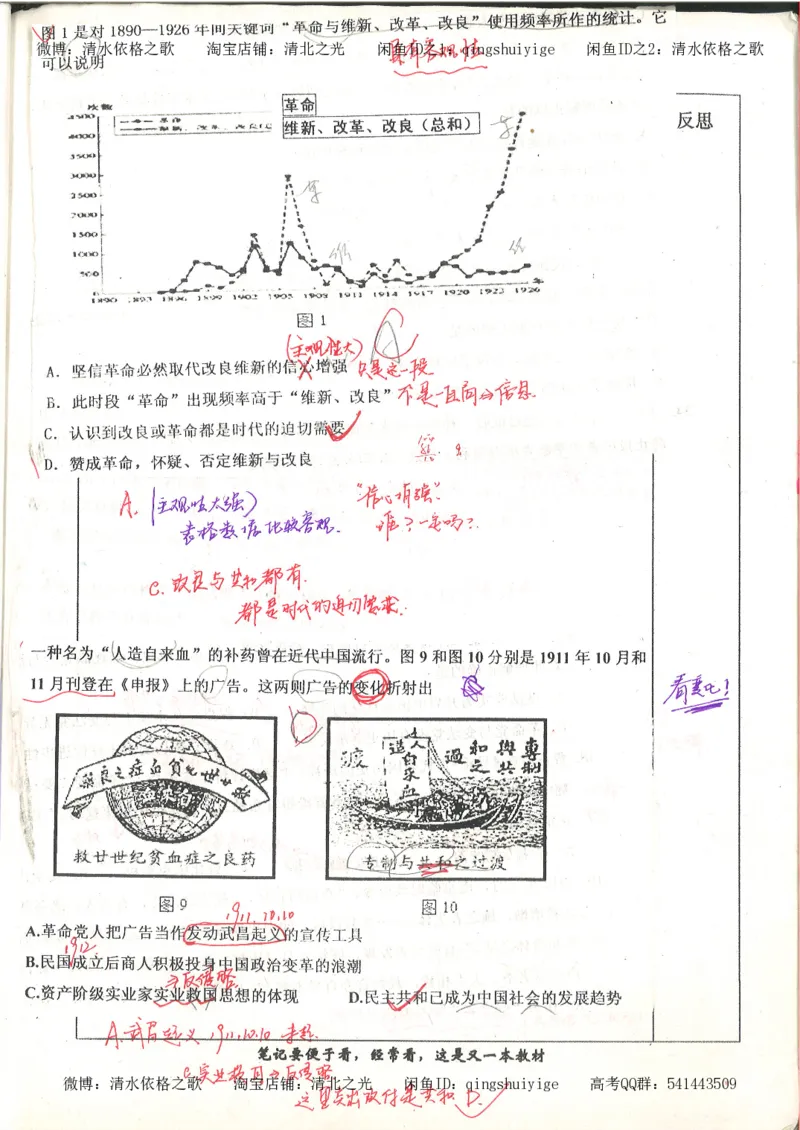 图1是对1890—1926年间关键词“革命与维新、改革、改良”使用频率所作的统计。它
微博：清水依格之歌 淘宝店铺：清北之光 闲鱼ID之1：qingshuiyige 闲鱼ID之2：清水依格之歌
可以说明
具有客观性
次数
革命
维新、改革、改良（总和）
反思
4500
4000
3500
3000
2500
2000
1500
1000
500
0
1890 1893 1896 1899 1902 1905 1908 1911 1914 1917 1920 1923 1926
图1
(主观性大)
A．坚信革命必然取代改良维新的信心增强 只是这一段
B．此时段“革命”出现频率高于“维新、改良” 不是一直高
C．认识到改良或革命都是时代的迫切需要
D．赞成革命，怀疑、否定维新与改良
A. (主观性太强) “信心增强”
表格数据比较客观. 谁？一定吗？
C. 改良与共和都有.
都是时代的迫切需要.
一种名为“人造自来血”的补药曾在近代中国流行。图9和图10分别是1911年10月和
11月刊登在《申报》上的广告。这两则广告的变化折射出
看变化！
药良之症血贫纪世廿救
专制与共和之过渡
人造自来血
救廿世纪贫血症之良药
专制与共和之过渡
图9
图10
1911.10.10
A.革命党人把广告当作发动武昌起义的宣传工具
1912
B.民国成立后商人积极投身中国政治变革的浪潮
C.资产阶级实业家实业救国思想的体现 D.民主共和已成为中国社会的发展趋势
A.武昌起义 1911.10.10
笔记要便于看，经常看，这是又一本教材
微博：清水依格之歌 淘宝店铺：清北之光 闲鱼ID：qingshuiyige 高考QQ群：541443509